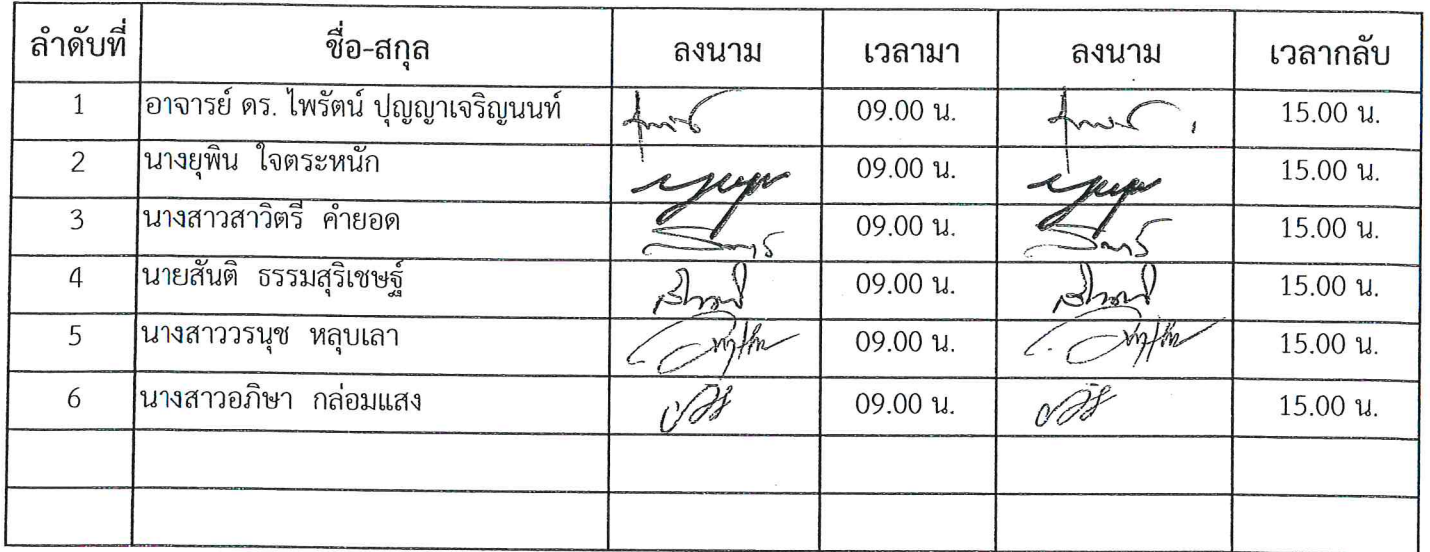 ลำดับที่ ชื่อ-สกุล ลงนาม เวลามา ลงนาม เวลากลับ
1 อาจารย์ ดร. ไพรัตน์ ปุญญาเจริญนนท์ 09.00 น. 15.00 น.
2 นางยุพิน ใจตระหนัก 09.00 น. 15.00 น.
3 นางสาวสาวิตรี คำยอด 09.00 น. 15.00 น.
4 นายสันติ ธรรมสุริเชษฐ์ 09.00 น. 15.00 น.
5 นางสาววรนุช หลุบเลา 09.00 น. 15.00 น.
6 นางสาวอภิษา กล่อมแสง 09.00 น. 15.00 น.